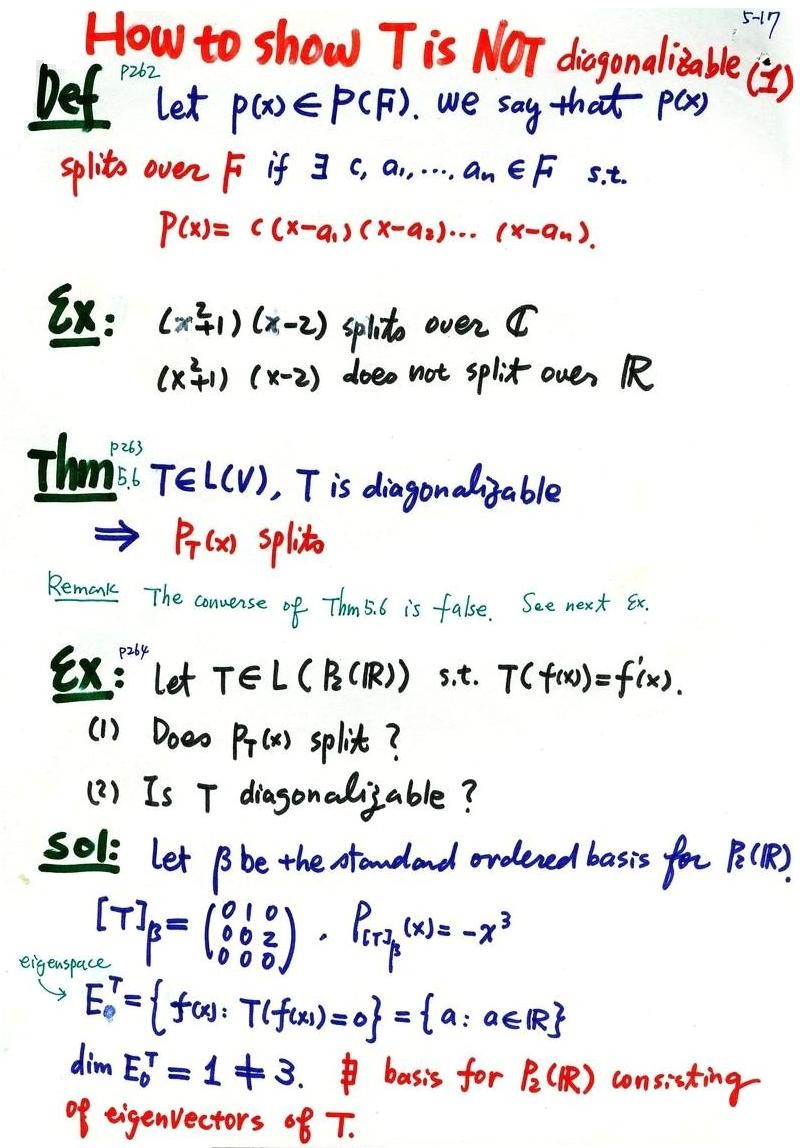 5-17
How to show T is NOT diagonalizable (1)
Def p262 Let p(x) ∈ P(F). we say that p(x)
splits over F if ∃ c, a₁, ..., aₙ ∈ F s.t.
P(x) = c(x-a₁)(x-a₂)... (x-aₙ).
Ex: (x²+1)(x-2) splits over ℂ
(x²+1) (x-2) does not split over ℝ
Thm p263 5.6 T∈L(V), T is diagonalizable
⇒ P_T(x) splits
Remark The converse of Thm 5.6 is false. See next Ex.
Ex: p264 Let T∈L(P₂(ℝ)) s.t. T(f(x))=f'(x).
(1) Does P_T(x) split?
(2) Is T diagonalizable?
Sol: Let β be the standard ordered basis for P₂(ℝ).
[T]_β = (0 1 0
0 0 2
0 0 0) . P_{[T]_β}(x) = -x³
eigenspace
E₀ᵀ = {f(x): T(f(x))=0} = {a: a∈ℝ}
dim E₀ᵀ = 1 ≠ 3. ∄ basis for P₂(ℝ) consisting
of eigenvectors of T.